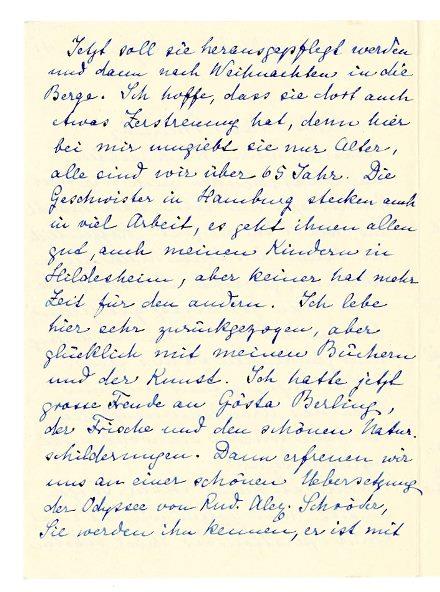 Jetzt soll sie herausgepflegt werden
und dann nach Weihnachten in die
Berge. Ich hoffe, dass sie dort auch
etwas Zerstreuung hat, denn hier
bei mir umgiebt sie nur Alter,
alle sind wir über 65 Jahr. Die
Geschwister in Hamburg stecken auch
in viel Arbeit, es geht ihnen allen
gut, auch meinen Kindern in
Hildesheim, aber keiner hat mehr
Zeit für den andern. Ich lebe
hier sehr zurückgezogen, aber
glücklich mit meinen Büchern
und der Kunst. Ich hatte jetzt
grosse Freude an Gösta Berling,
der Frische und den schönen Natur-
schilderungen. Dann erfreuen wir
uns an einer schönen Uebersetzung
der Odyssee von Rud. Alex. Schröder,
Sie werden ihn kennen, er ist mit